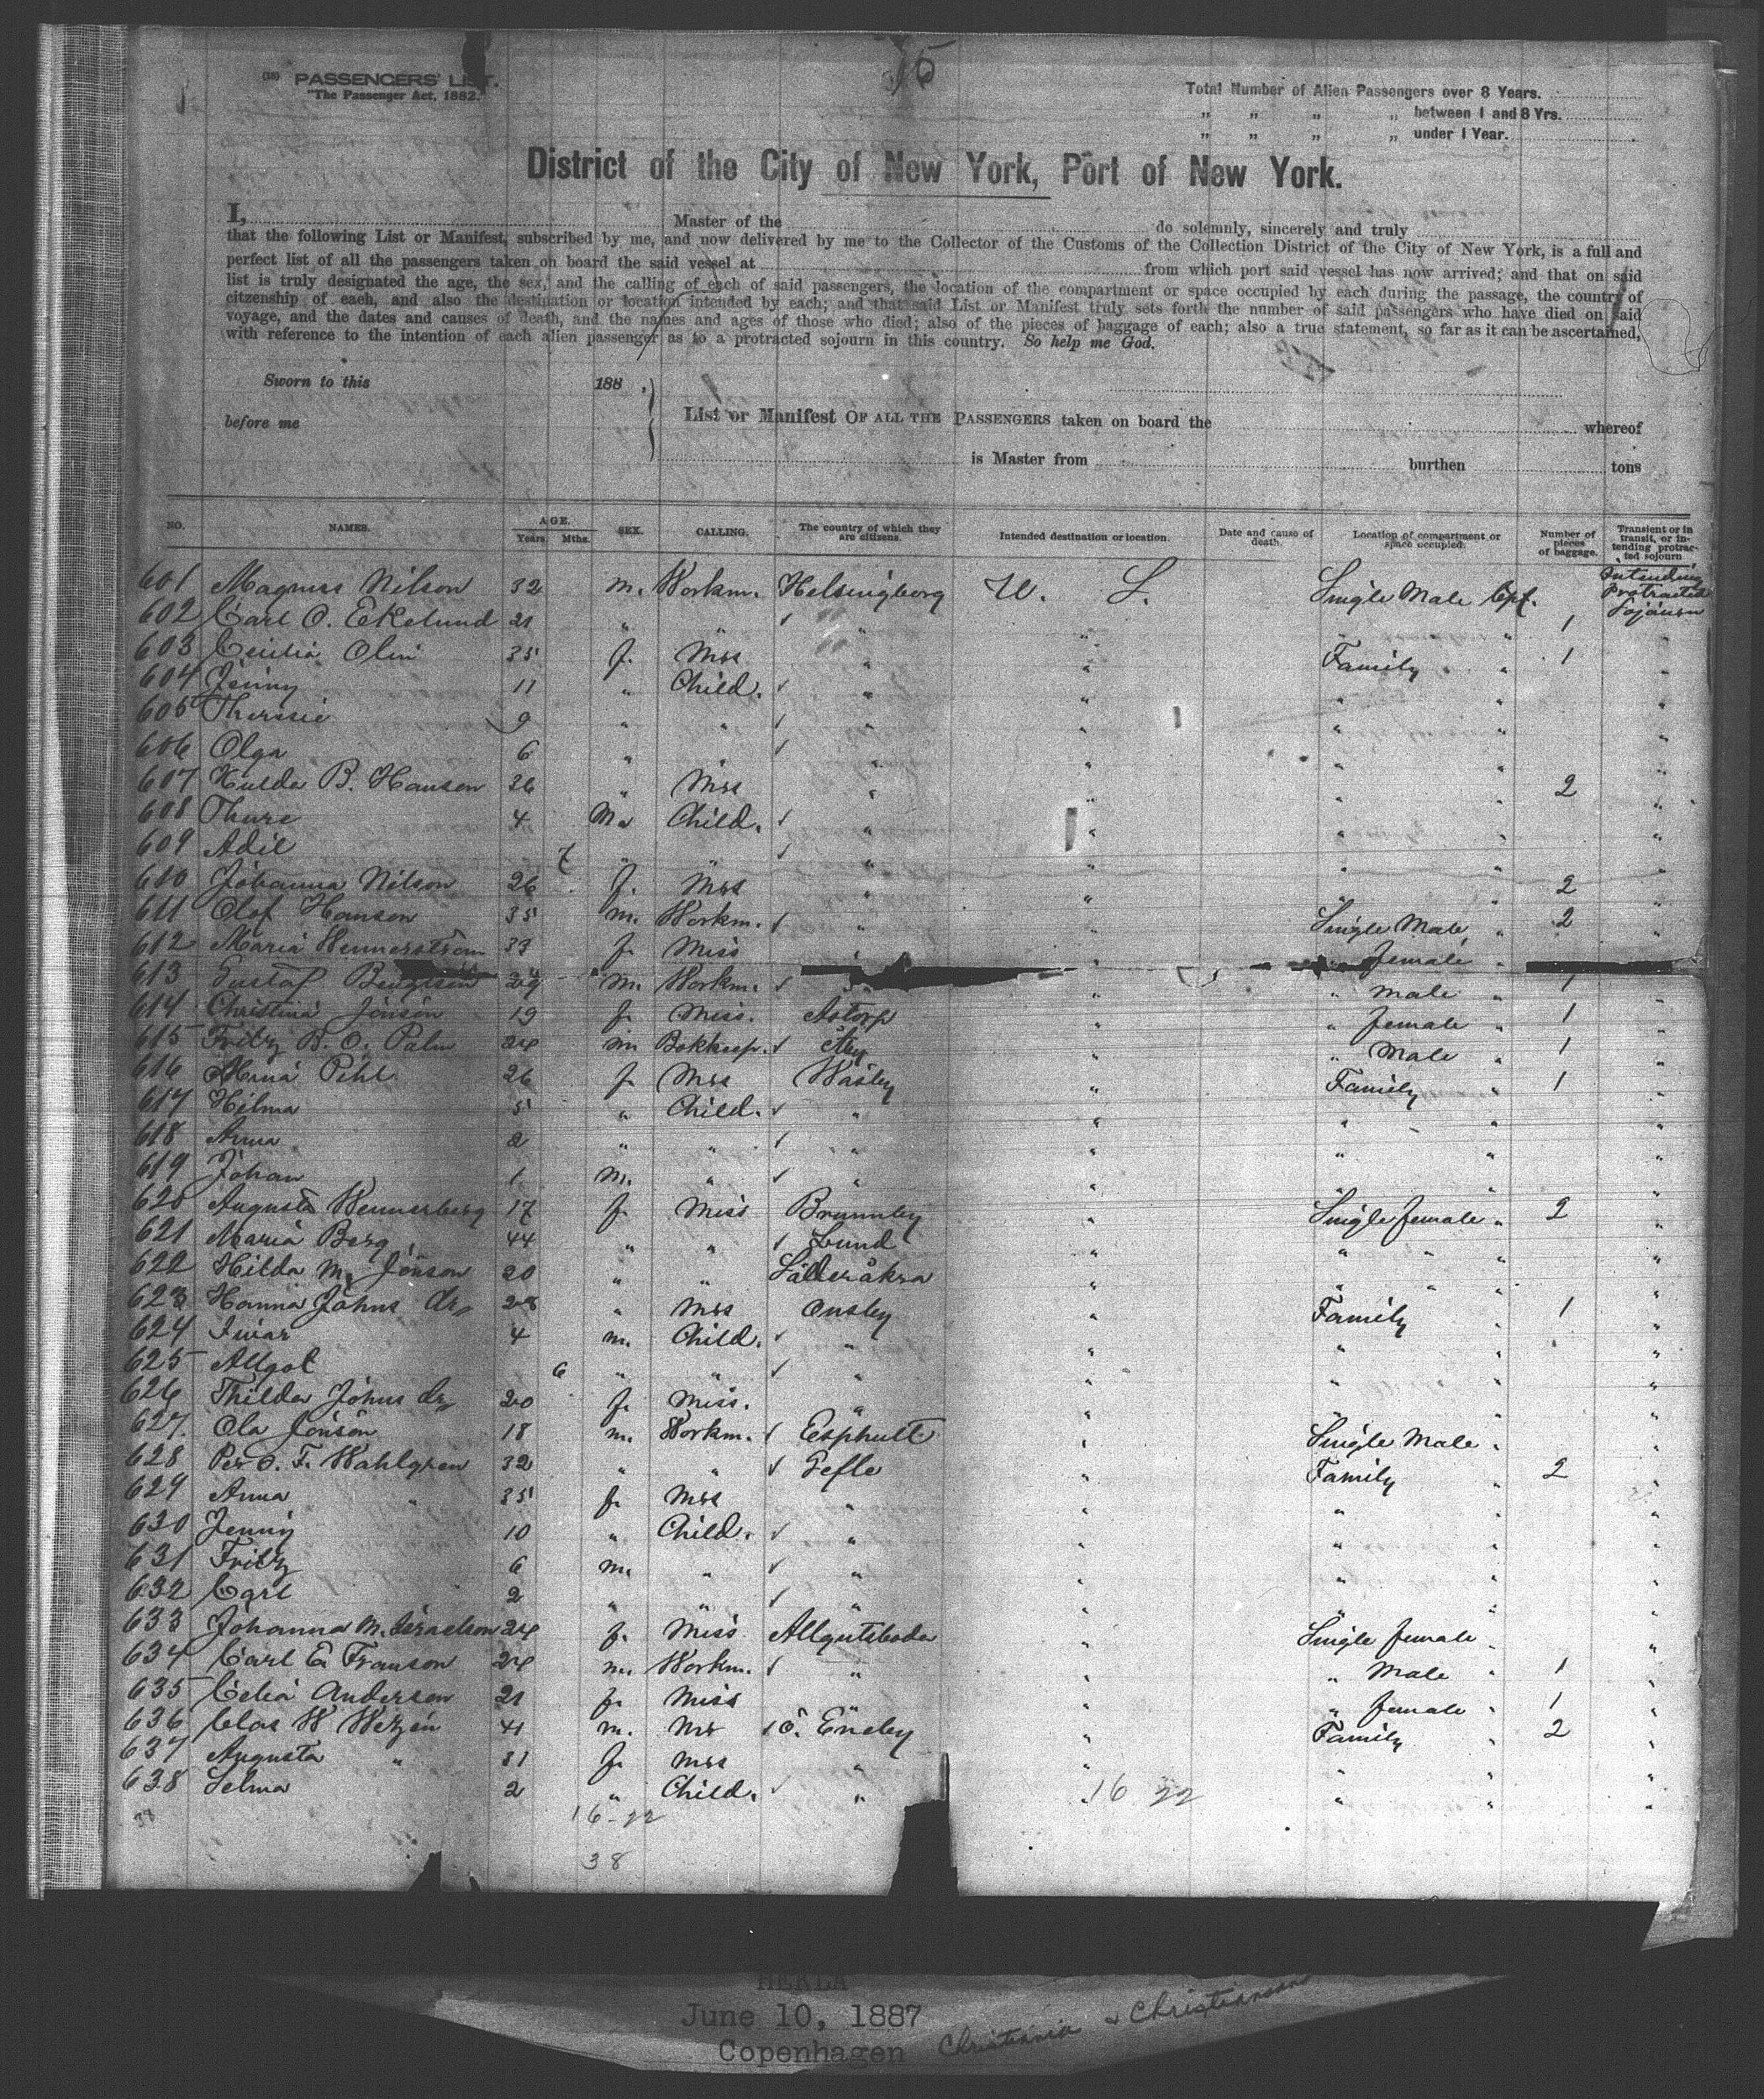 15
(18) PASSENGERS' LIST.
"The Passenger Act, 1882."
Total Number of Alien Passengers over 8 Years.
„ „ „ „ between 1 and 8 Yrs.
„ „ „ „ under 1 Year.
District of the City of New York, Port of New York.
I, Master of the do solemnly, sincerely and truly
that the following List or Manifest, subscribed by me, and now delivered by me to the Collector of the Customs of the Collection District of the City of New York, is a full and
perfect list of all the passengers taken on board the said vessel at from which port said vessel has now arrived; and that on said
list is truly designated the age, the sex, and the calling of each of said passengers, the location of the compartment or space occupied by each during the passage, the country of
citzenship of each, and also the destination or location intended by each; and that said List or Manifest truly sets forth the number of said passengers who have died on said
voyage, and the dates and causes of death, and the names and ages of those who died; also of the pieces of baggage of each; also a true statement, so far as it can be ascertained,
with reference to the intention of each alien passenger as to a protracted sojourn in this country. So help me God.
Sworn to this 188 ,
before me
List or Manifest OF ALL THE PASSENGERS taken on board the whereof
is Master from burthen tons
NO. NAMES. AGE. Years. Mths. SEX. CALLING. The country of which they are citizens. Intended destination or location. Date and cause of death. Location of compartment or space occupied. Number of pieces of baggage. Transient or in transit, or intending protracted sojourn
601 Magnus Nilson 32 m. Workm. Helsingborg U. S. Single Male Cpt. Intending Protracted Sojourn
602 Carl O. Ekelund 21 " " " " " 1 "
603 Cecilia Olin 35 f. Mrs " " Family " 1 "
604 Jenny 11 " Child. " " " "
605 Theresie 9 " " " " " "
606 Olga 6 " " " " " "
607 Hulda B. Hanson 26 " Mrs " " " 2 "
608 Thure 4 M. Child. " " " "
609 Adil 7 " " " " " "
610 Johanna Nilson 26 f. Mrs " " " 2 "
611 Olof Hanson 35 m. Workm. " " Single Male " 2 "
612 Maria Wennerström 33 f. Miss " " female "
613 Gustaf Bengtson 29 m. Workm. " " Male " 1 "
614 Christina Jönson 19 f. Miss. Astorp " " female " 1 "
615 Fritz B. O. Palm 24 m Bokkeep. " " Male " 1 "
616 Pihl 26 f. Mrs Wasby " Family " 1 "
617 Hilma 5 " Child. " " " "
618 Anna 2 " " " " " "
619 Johan 1 m. " " " " "
620 Augusta Wennerberg 17 f. Miss Brunnby " Single female " 2 "
621 Maria Berg 44 " " Lund " " " " "
622 Hilda M. Jönson 20 " " " " " " "
623 Hanna Johns dr 28 " Mrs Onsby " Family " 1 "
624 Iwar 4 m. Child. " " " "
625 Allgot 6 " " " " " "
626 Thilda Johns dr 20 f. Miss. " " " "
627. Ola Jönson 18 m. Workm. Esphult " Single Male " "
628 Per O. F. Wahlgren 32 " " Gefle " Family " 2 "
629 Anna " 35 f. Mrs " " " "
630 Jenny 10 " Child. " " " "
631 Fritz 6 m. " " " " "
632 Carl 2 " " " " " "
633 Johanna M. Israelson 24 f. Miss Allgutsboda " Single female " "
634 Carl E Franson 24 m. Workm. " " " Male " 1 "
635 Celia Anderson 21 f. Miss " " female " 1 "
636 Clas W Wetzén 41 m. Mr Ö. Eneby " Family " 2 "
637 Augusta " 31 f. Mrs " " " "
638 Selma 2 " Child. " " " "
38 16-22 16 22
38
HEKLA
June 10, 1887
Copenhagen Christiania & Christiansand